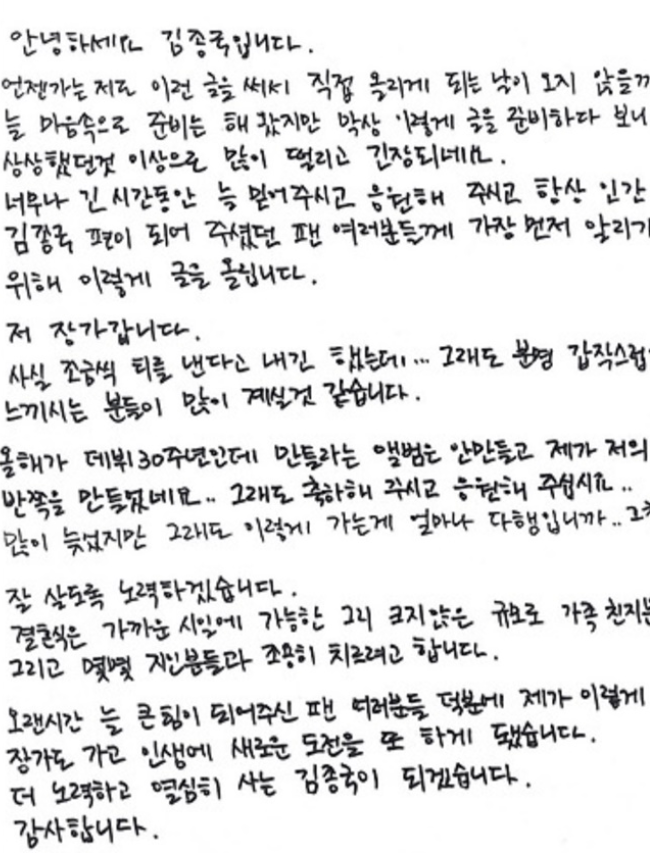 안녕하세요 김종국입니다.
언젠가는 저도 이런 글을 써서 직접 올리게 되는 날이 오지 않을까
늘 마음속으로 준비는 해 왔지만 막상 이렇게 글을 준비하다 보니
상상했던것 이상으로 많이 떨리고 긴장되네요.
너무나 긴 시간동안 늘 믿어주시고 응원해 주시고 항상 인간
김종국 편이 되어 주셨던 팬 여러분들께 가장 먼저 알리기
위해 이렇게 글을 올립니다.
저 장가갑니다.
사실 조금씩 티를 낸다고 내긴 했는데... 그래도 분명 갑작스럽
느끼시는 분들이 많이 계실것 같습니다.
올해가 데뷔30주년인데 만들라는 앨범은 안만들고 제가 저의
반쪽을 만들었네요.. 그래도 축하해 주시고 응원해 주십시요..
많이 늦었지만 그래도 이렇게 가는게 얼마나 다행입니까..
잘 살도록 노력하겠습니다.
결혼식은 가까운 시일에 가능한 그리 크지않은 규모로 가족 친지분
그리고 몇몇 지인분들과 조용히 치르려고 합니다.
오랜시간 늘 큰힘이 되어주신 팬 여러분들 덕분에 제가 이렇게
장가도 가고 인생에 새로운 도전을 또 하게 됐습니다.
더 노력하고 열심히 사는 김종국이 되겠습니다.
감사합니다.